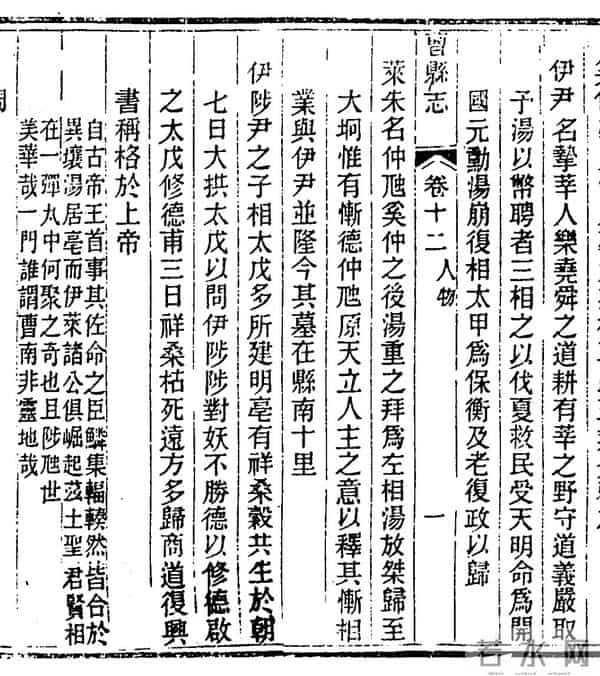 伊尹名摯莘人樂堯舜之道耕有莘之野守道義嚴取
予湯以幣聘者三相之以伐夏救民受天明命爲開
國元勳湯崩復相太甲爲保衡及老復政以歸
曹縣志
卷十二 人物
一
萊朱名仲虺奚仲之後湯重之拜爲左相湯放桀歸至
大坰惟有慚德仲虺原天立人主之意以釋其慚相
業與伊尹並隆今其墓在縣南十里
伊陟尹之子相太戊多所建明亳有祥桑穀共生於朝
七日大拱太戊以問伊陟陟對妖不勝德以修德啟
之太戊修德甫三日祥桑枯死遠方多歸商道復興
書稱格於上帝
自古帝王首事其佐命之臣鱗集輻輳然皆合於
異壤湯居亳而伊萊諸公俱崛起茲土聖君賢相
在一彈丸中何聚之奇也且陟虺世
美華哉一門誰謂曹南非靈地哉
若水网